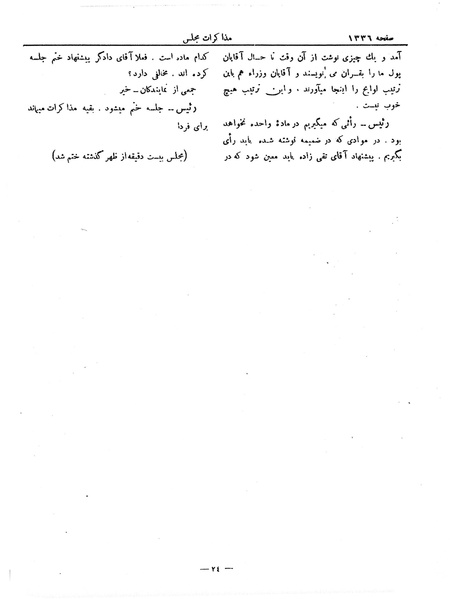 صفحه ۱۳۳۶
مذاکرات مجلس
آمد و یك چیزی نوشت از آن وقت تا حال آقایان
پول ما را بقران می نویسند و آقایان وزراء هم باین
ترتیب لوایح را اینجا میآورند . و این ترتیب هیچ
خوب نیست .
رئیس ــ رأئی که میگیریم در مادهٔ واحده نخواهد
بود . در موادی که در ضمیمه نوشته شده باید رأی
بگیریم . پیشنهاد آقای تقی زاده باید معین شود که در
کدام ماده است . فعلا آقای دادگر پیشنهاد ختم جلسه
کرده اند . مخالفی دارد؟
جمعی از نمایندگان ــ خیر
رئیس ــ جلسه ختم میشود . بقیه مذاکرات میماند
برای فردا
(مجلس بیست دقیقه از ظهر گذشته ختم شد)
— ۲٤ —